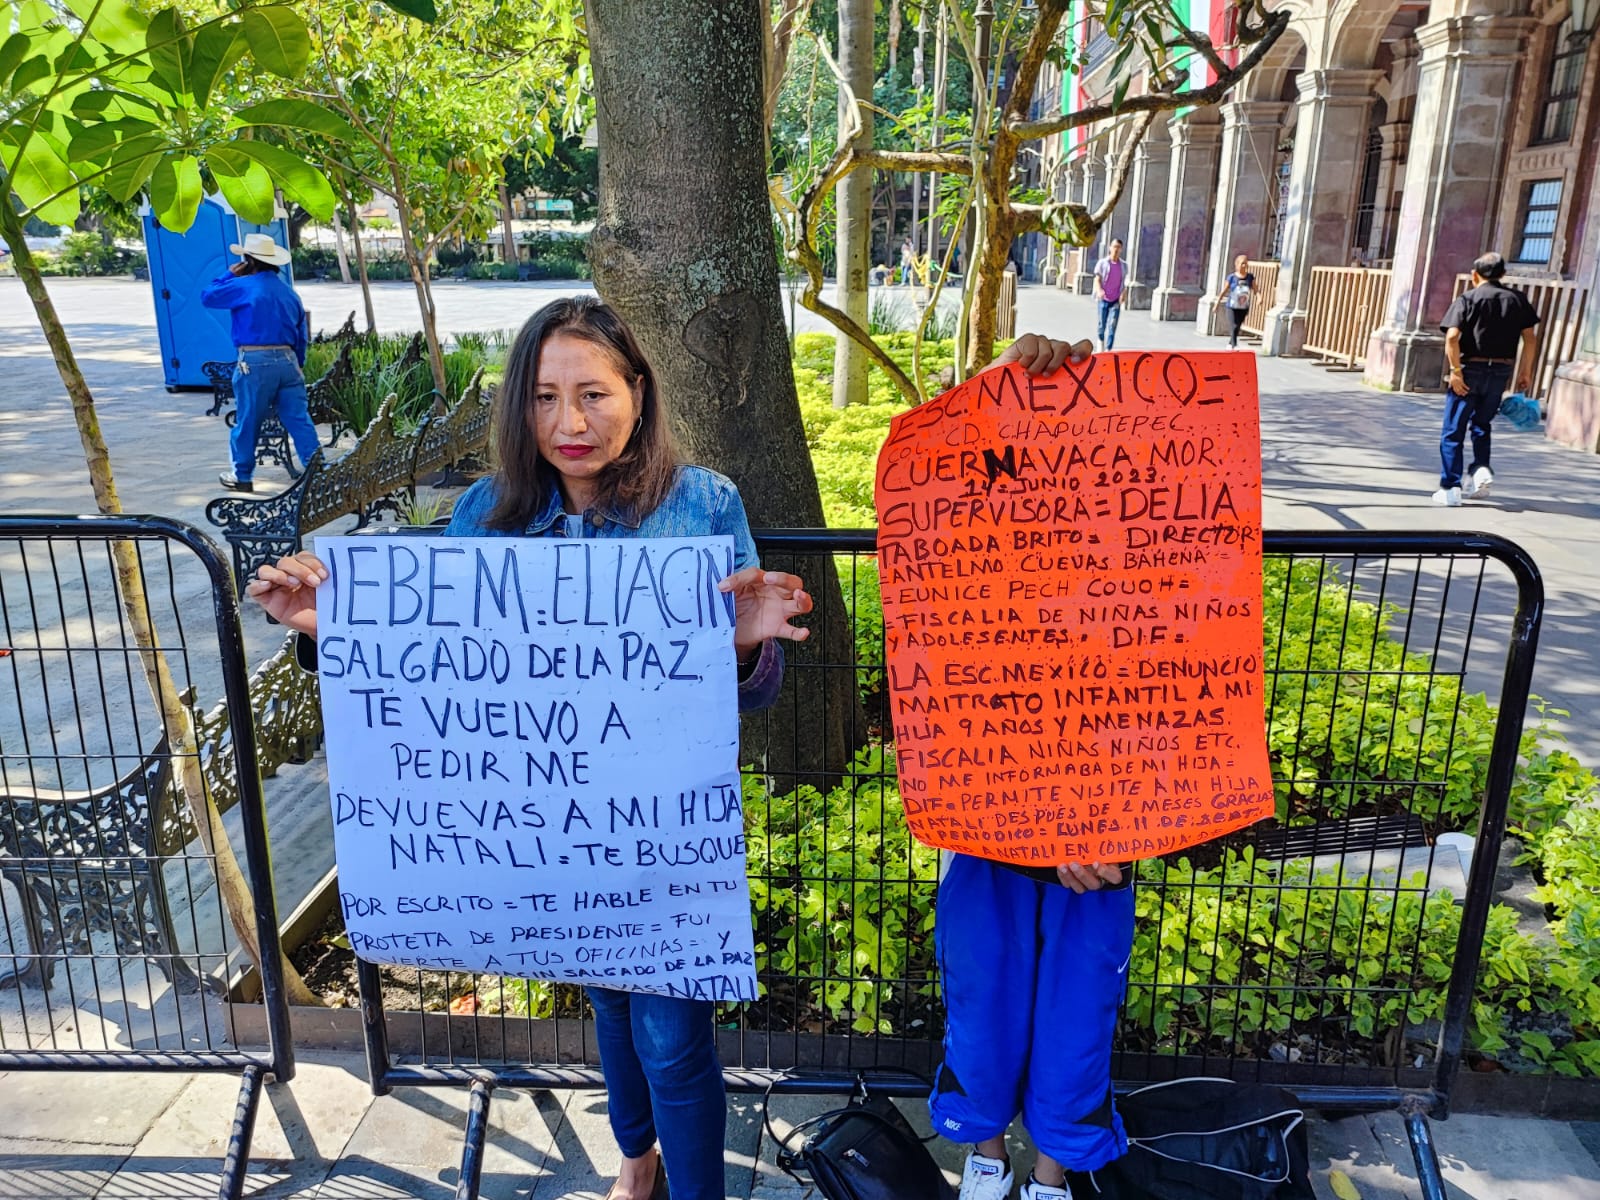 IEBEM = ELIACIN
SALGADO DE LA PAZ,
TE VUELVO A
PEDIR ME
DEVUEVAS A MI HIJA
NATALI = TE BUSQUE
POR ESCRITO = TE HABLE EN TU
PROTETA DE PRESIDENTE = FUI
A VERTE A TUS OFICINAS = Y
SALGADO DE LA PAZ
NATALI
ESC. MEXICO =
COL. CD. CHAPULTEPEC.
CUERNAVACA MOR.
JUNIO 2023.
SUPERVISORA = DELIA
TABOADA BRITO = DIRECTOR
= ANTELMO CUEVAS BAHENA =
= EUNICE PECH COUOH =
= FISCALIA DE NIÑAS NIÑOS
Y ADOLESENTES. DIF =
LA ESC. MEXICO = DENUNCIO
MAITRATO INFANTIL A MI
HIJA 9 AÑOS Y AMENAZAS.
FISCALIA NIÑAS NIÑOS ETC.
NO ME INFORMABA DE MI HIJA =
DIF = PERMITE VISITE A MI HIJA
NATALI DESPUES DE 2 MESES GRACIAS
PERIODICO = LUNES 11 DE SEPT.
A NATALI EN CONPANIA DE
NIKE